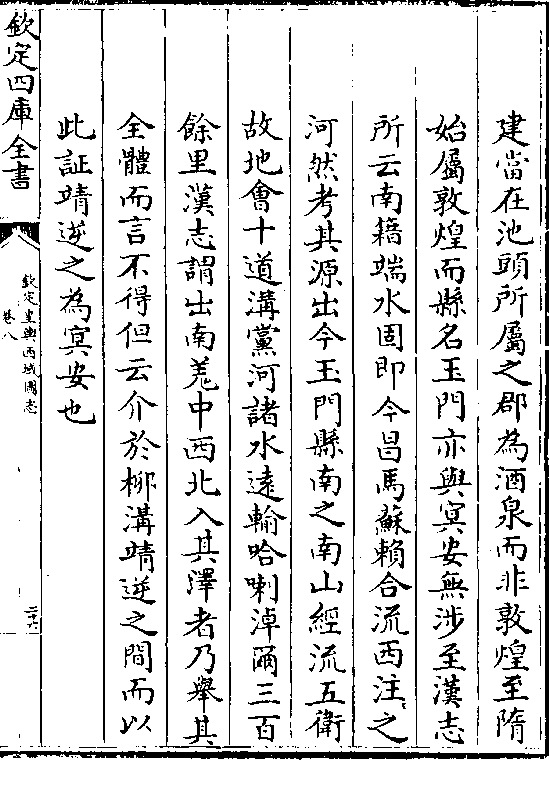 建當在池頭所屬之郡為酒泉而非敦煌至隋
始屬敦煌而縣名玉門亦與冥安無涉至漢志
所云南籍端水固即今昌馬蘇賴合流西注之
河然考其源出今玉門縣南之南山經流五衛
故地會十道溝黨河諸水遠輸哈喇淖爾三百
餘里漢志謂出南羗中西北入其澤者乃舉其
全體而言不得但云介於柳溝靖逆之間而以
此証靖逆之為冥安也
欽定四庫全書
欽定皇輿西域圖志
卷八
二十六